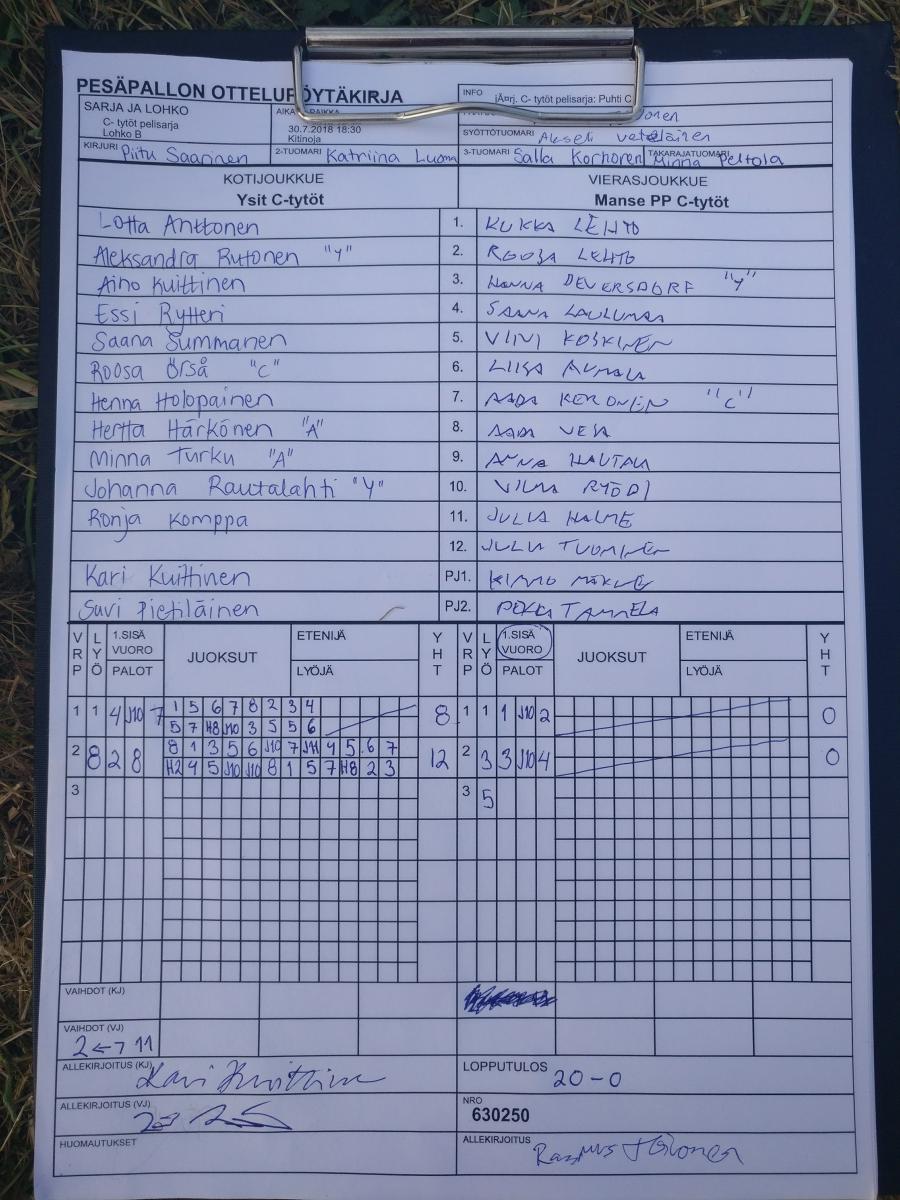 PESÄPALLON OTTELUPÖYTÄKIRJA
INFO jÃ¤rj. C- tytöt pelisarja: Puhti C
SARJA JA LOHKO
C- tytöt pelisarja
Lohko B
AIKA PAIKKA
30.7.2018 18:30
Kitinoja
SYÖTTÖTUOMARI Akseli
KIRJURI Piitu Saarinen 2-TUOMARI Katriina Luoma 3-TUOMARI Salla Korhonen TAKARAJATUOMARI Minna Peltola
KOTIJOUKKUE VIERASJOUKKUE
Ysit C-tytöt Manse PP C-tytöt
Lotta Anttonen 1. KUKKA LEHTO
Aleksandra Rutonen "Y" 2. ROOSA LEHTO
Aino Kuittinen 3. HANNA DEVERSDORF "Y"
Essi Rytteri 4. SAANA LAULUMAA
Saana Summanen 5. VIIVI KOSKINEN
Roosa Örså "C" 6. LIISA AUMALA
Henna Holopainen 7. AADA KERONEN "C"
Hertta Härkönen "A" 8. AADA VESA
Minna Turku "A" 9. ANNA HAUTALA
Johanna Rautalahti "Y" 10. VILMA RYÖDI
Ronja Komppa 11. JULIA HALME
12. JULIA TUOMINEN
Kari Kuittinen PJ1. KIMMO
Suvi Pietiläinen PJ2. PEKKA TAMMELA
VRP LYÖ 1.SISÄ VUORO PALOT JUOKSUT ETENIJÄ LYÖJÄ YHT VRP LYÖ 1.SISÄ VUORO PALOT JUOKSUT ETENIJÄ LYÖJÄ YHT
1 1 4 J10 7 1 5 6 7 8 2 3 4 8 1 1 1 J10 2 0
5 7 H8 J10 3 5 5 6
2 8 2 8 8 1 3 5 6 J10 7 J11 4 5 6 7 12 2 3 3 J10 4 0
H2 4 5 J10 J10 8 1 5 7 H8 2 3
3 3 5
VAIHDOT (KJ)
VAIHDOT (VJ)
2 ←7 11
ALLEKIRJOITUS (KJ) Kari Kuittinen LOPPUTULOS 20-0
ALLEKIRJOITUS (VJ) NRO
630250
HUOMAUTUKSET ALLEKIRJOITUS Rasmus